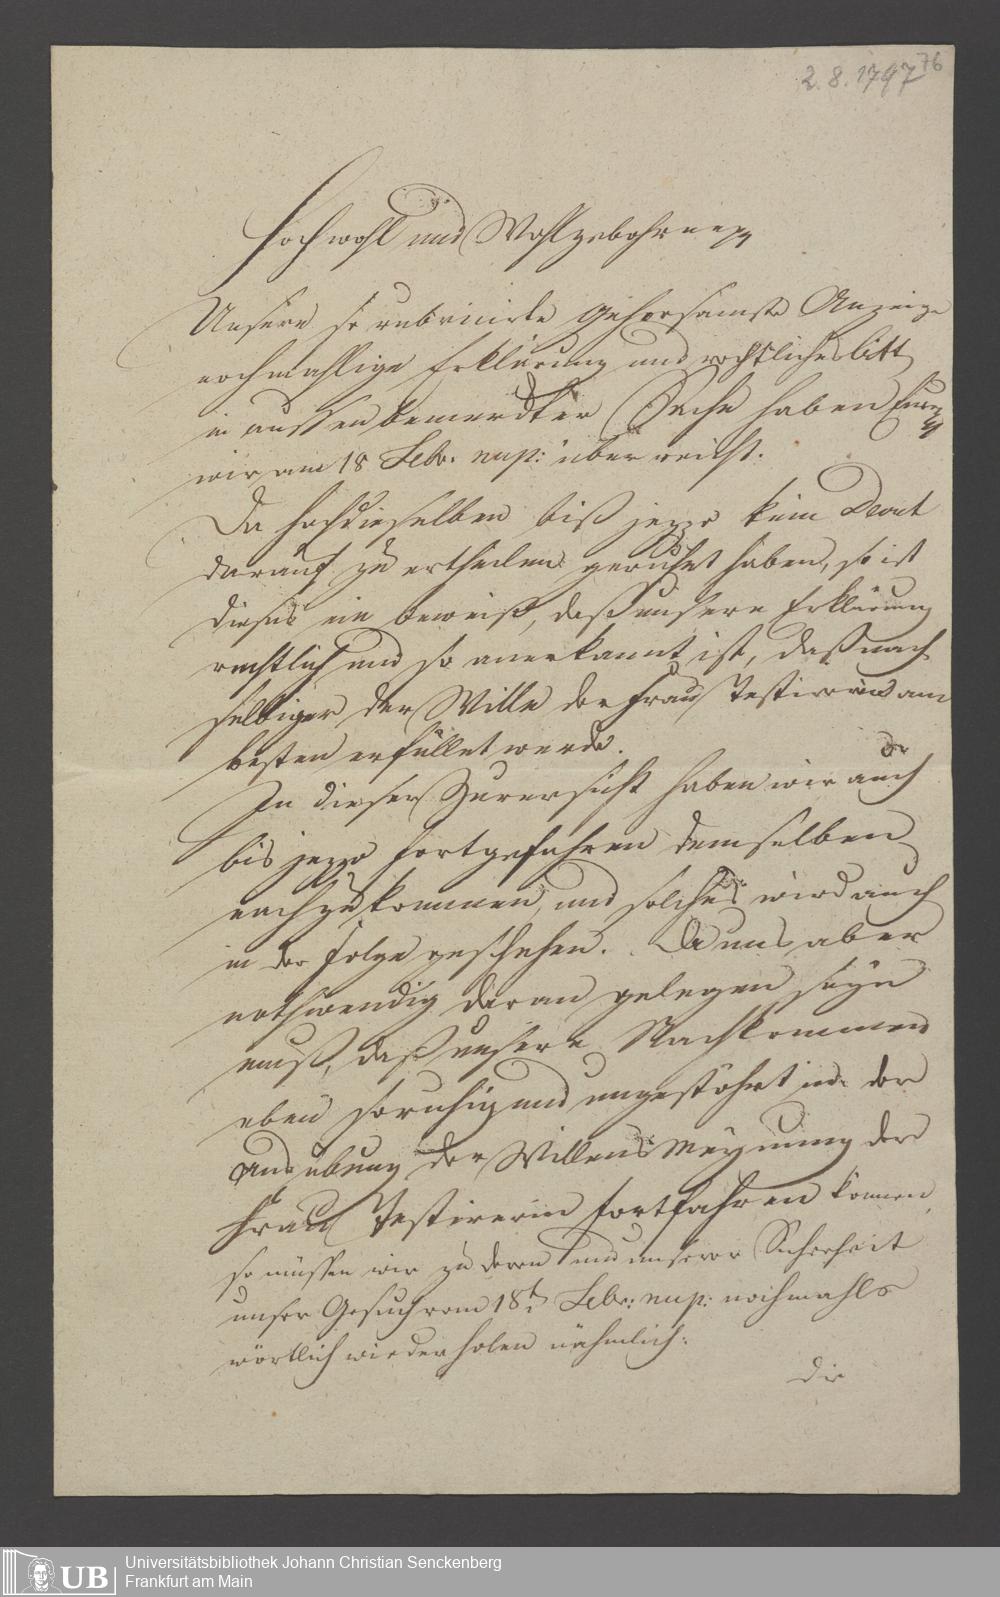 2.8.1797
76
Hochwohl und Wohlgebohrne
Unsere so rubricirte gehorsamste Anzeige
nochmahlige Erklärung und rechtliche Bitt
in aussen bemerckter Sache haben Euer
wir am 18 Febr. nup: überreicht.
Da hochdieselben biß jezzo kein Decret
darauf zu ertheilen geruhet haben, so ist
dieses ein beweiß, daß unsere Erklärung
rechtlich und so anerkannt ist, daß nach
selbiger der Wille der Frau Testirerin am
besten erfüllet werde.
In dieser Zuversicht haben wir auch
bis jezzo fortgefahren demselben
nachzukommen, und solches wird auch
in der Folge geschehen. Da uns aber
nothwendig daran gelegen seyn
muß, daß unsere Nachkommen
eben so ruhig und ungestöhrt in der
Ausübung der Willens Meynung der
Frau Testirerin fortfahren können,
so müssen wir zu deren und unserer Sicherheit
unser Gesuch vom 18t Febr: nup: nochmahls
wörtlich wiederholen nähmlich:
die
UB
Universitätsbibliothek Johann Christian Senckenberg
Frankfurt am Main